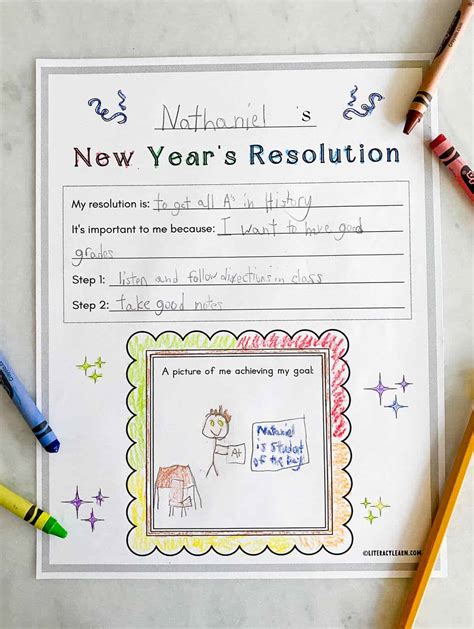 Nathaniel 's
New Year's Resolution
My resolution is: to get all A's in History
It's important to me because: I want to have good
grades
Step 1: listen and follow directions in class
Step 2: take good notes
A picture of me achieving my goal:
A+
Nathaniel
is Student
of the Day
©LITERACYLEARN.COM